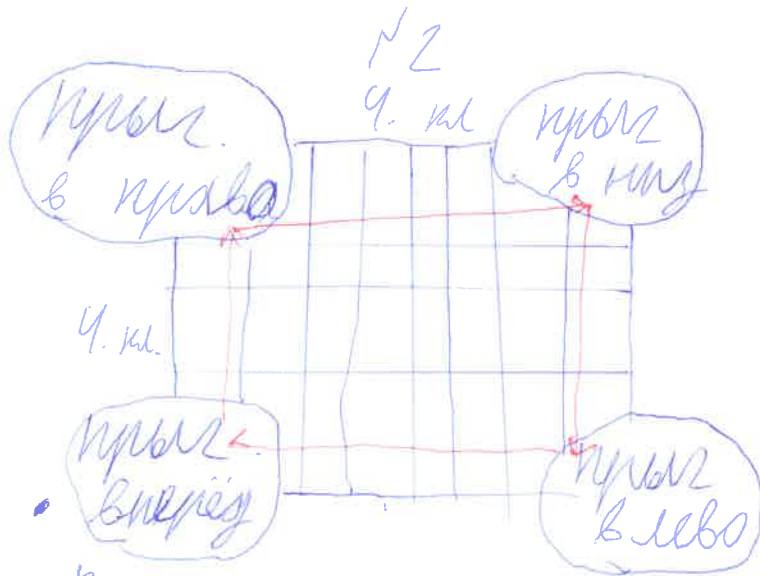 №2
4. кл
прыг.
в права
прыг
в низ
4. кл.
прыг.
вперёд
прыг
в лево